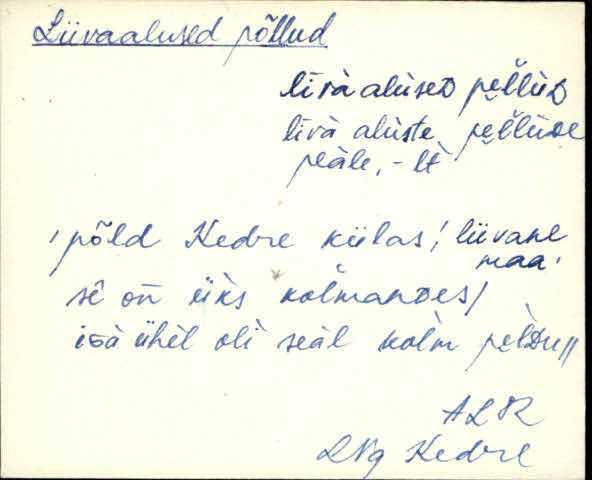 Liivaalused põllud
livà alùseᴅ pè̮ĺĺùᴅ
livà alùste pè̮ĺĺùᴅe
peäle, -lt
'põld Kedre külas, liivane
maa'
sê oǹ üks kolmanᴅes/
isà ühèl oli seäl kolm pè̮lᴅu//
ALR
LNg Kedre